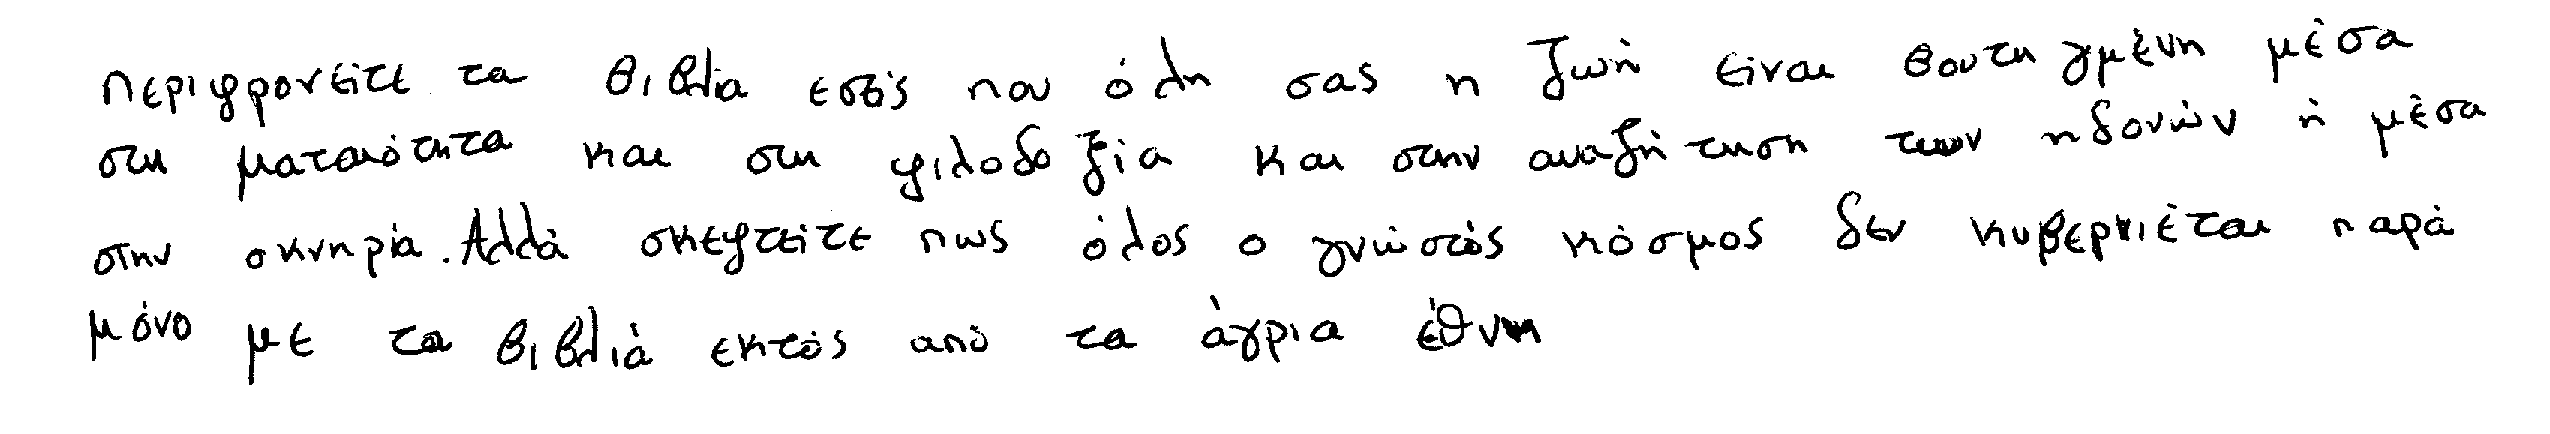 περιφρονείτε τα βιβλία εσείς που όλη σας η ζωή είναι βουτηγμένη μέσα
στη ματαιότητα και στη φιλοδοξία και στην αναζήτηση των ηδονών ή μέσα
στην οκνηρία. Αλλά σκεφτείτε πως όλος ο γνώστός κόσμος δεν κυβερνιέται παρά
μόνο με τα βιβλιά εκτός από τα άγρια έθνη